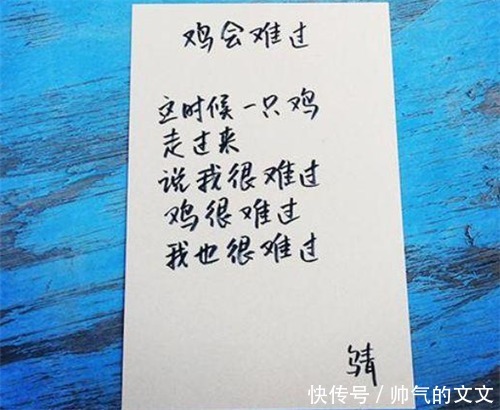 鸡会难过
这时候一只鸡
走过来
说我很难过
鸡很难过
我也很难过
乌青
快传号/帅气的文文